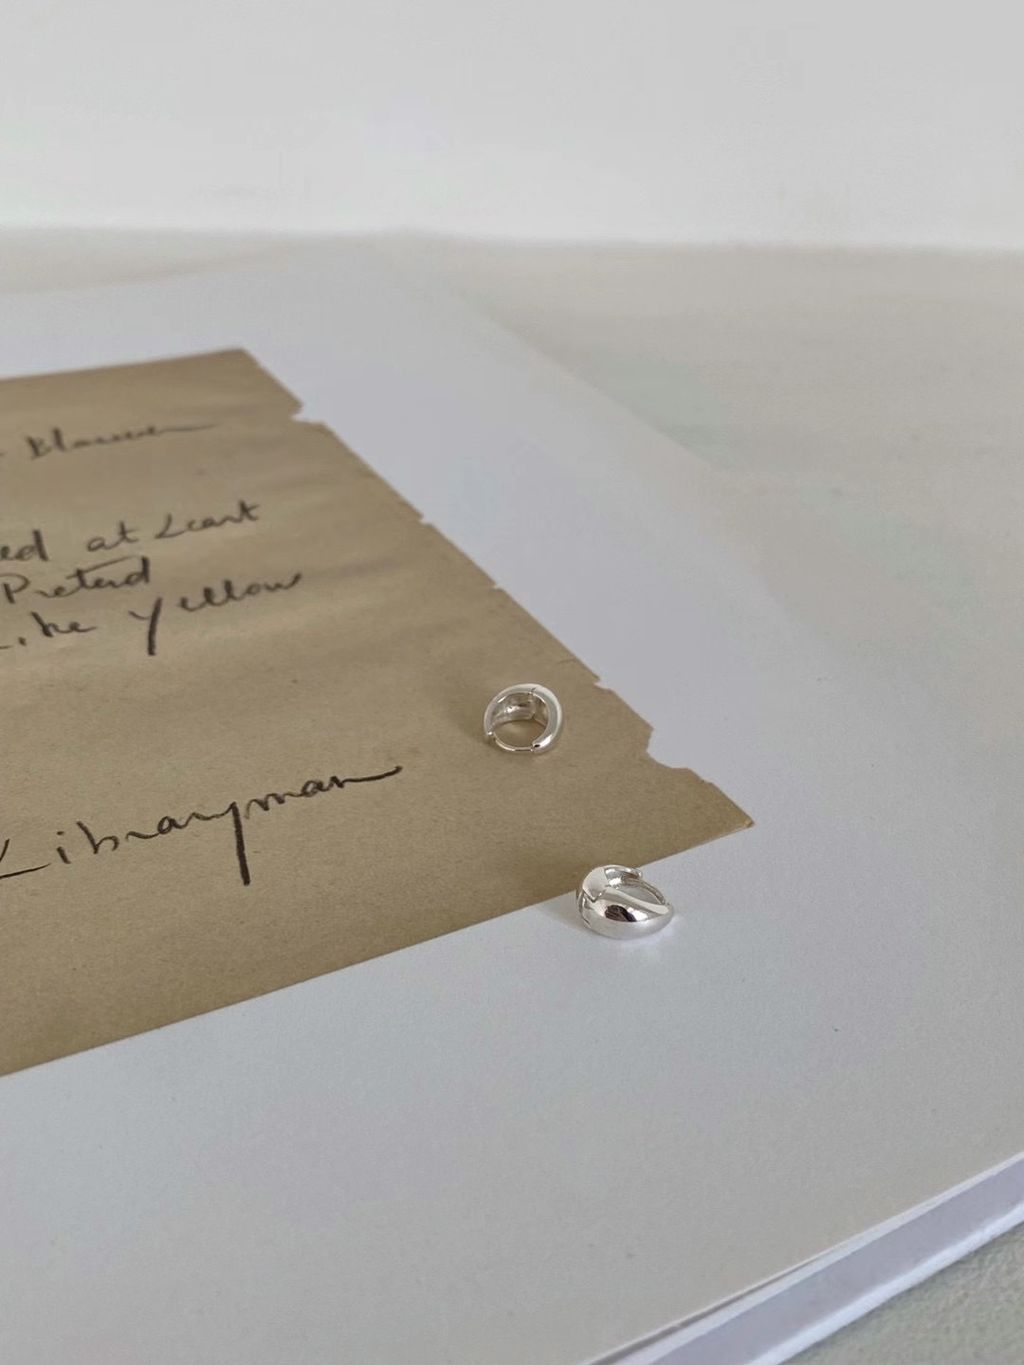 Blauwen
ed at Least
Pretend
Like Yellow
Libraryman